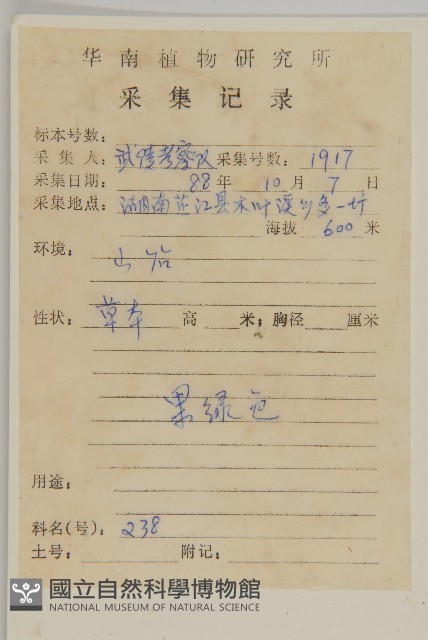 华南植物研究所
采集记录
标本号数:
采集人: 武陵考察队 采集号数: 1917
采集日期: 88年 10月 7日
采集地点: 湖南芷江县木叶溪
海拔 600 米
环境: 山
性状: 草本 高 米; 胸径 厘米
果绿色
用途:
科名(号): 238
土号: 附记:
國立自然科學博物館
NATIONAL MUSEUM OF NATURAL SCIENCE